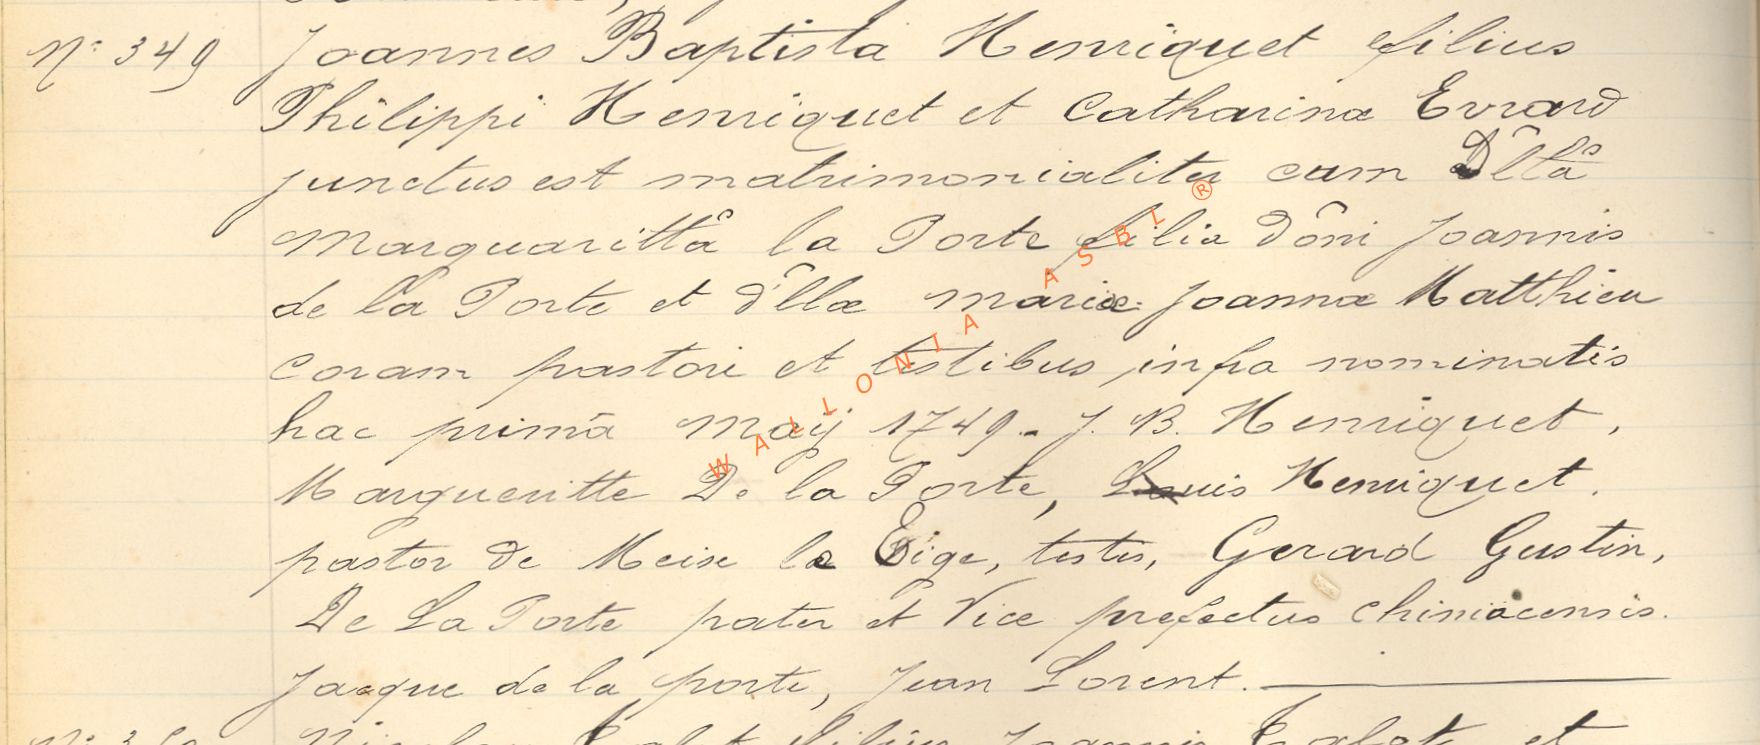 N° 349 Joannes Baptista Henriquet filius
Philippi Henriquet et Catharinæ Evrard
junctus est matrimonialiter cum D^ltâ
Marguarittâ la Porte filia dôni Joannis
de la Porte et d^llæ mariæ Joannæ Matthieu
coram pastori et testibus infra nominatis
hac primâ Maÿ 1749. J. B. Henriquet,
Margueritte De la Porte, Louis Henriquet.
pastor de Meix le Tige, testis, Gerard Gustin,
De La Porte pater et Vice prefectus chiniacensis.
Jacque de la porte, Jean Lorent.
WALLONIA ASBL ®